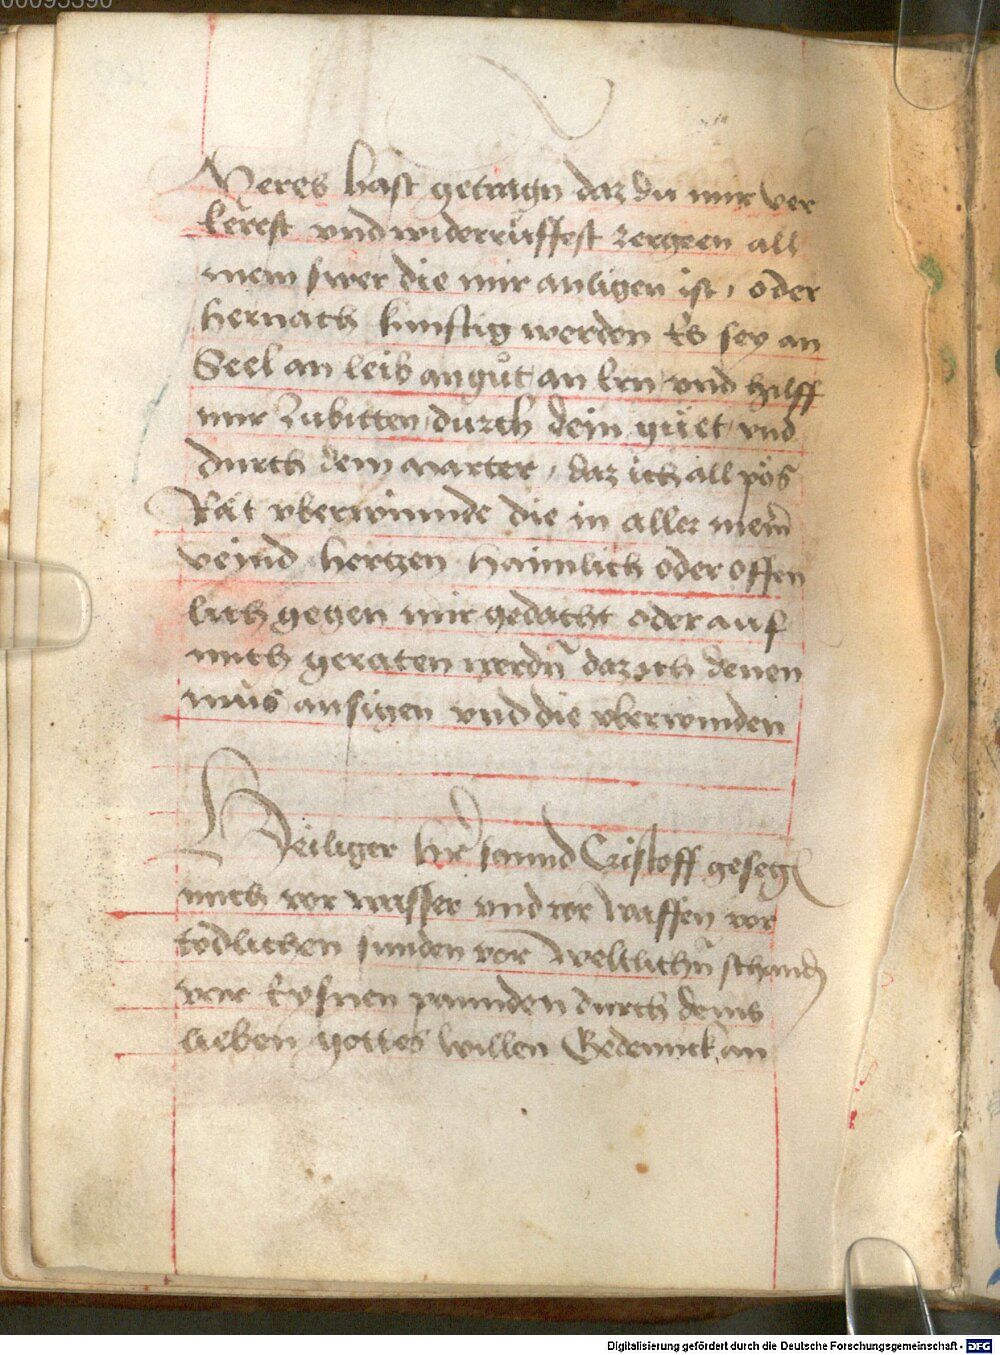 00095390
Meres hast getragn daz du mir ver
kerest vnd widerrůffest zergeen all
mein swer die mir anligen ist, oder
hernach kunftig werden Es sey an
Seel an leib an gůt an Ern vnd hilff
mir zubitten durch dein gůet vnd
durch dein marter, daz ich all pös
Rät vberwinnde die in aller mein̄
veind hertzen haimlich oder offen
lich gegen mir gedacht oder auf
mich geraten werdn̄ daz ich denen
müs ansigen vnd die vberwinden
Heiliger hr̄ sannd Cristoff gesegn
mich vor wasser vnd vor waffen vor
tödlichen sunden vor weltlichn̄ schandn
vor Eysnen pannden durch deins
lieben gottes willen Gedennck an
Digitalisierung gefördert durch die Deutsche Forschungsgemeinschaft - DFG